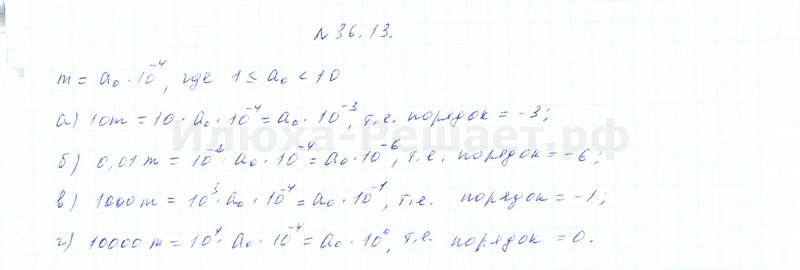 N 36.13.
m = a₀ · 10⁻⁴, где 1 ≤ a₀ < 10
а) 10m = 10 · a₀ · 10⁻⁴ = a₀ · 10⁻³, т.е. порядок = -3;
Илюха-Решает.рф
б) 0,01m = 10⁻² · a₀ · 10⁻⁴ = a₀ · 10⁻⁶, т.е. порядок = -6;
в) 1000m = 10³ · a₀ · 10⁻⁴ = a₀ · 10⁻¹, т.е. порядок = -1;
г) 10000m = 10⁴ · a₀ · 10⁻⁴ = a₀ · 10⁰, т.е. порядок = 0.